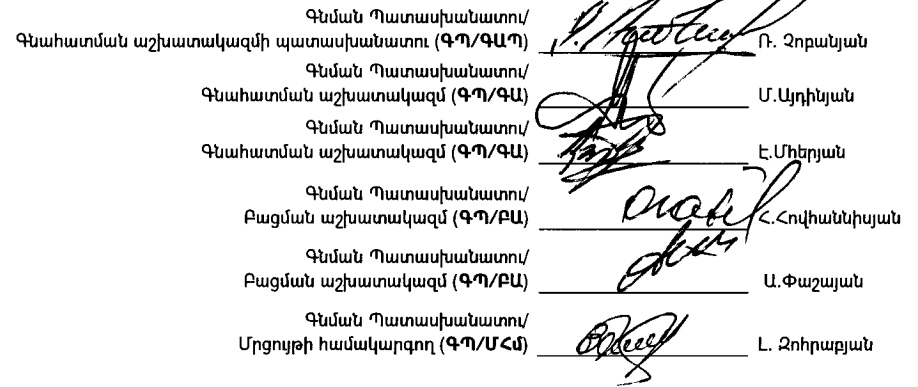 Գնման Պատասխանատու/
Գնահատման աշխատակազմի պատասխանատու (ԳՊ/ԳԱՊ) Ռ. Չոբանյան
Գնման Պատասխանատու/
Գնահատման աշխատակազմ (ԳՊ/ԳԱ) Մ.Այդինյան
Գնման Պատասխանատու/
Գնահատման աշխատակազմ (ԳՊ/ԳԱ) Է.Մհերյան
Գնման Պատասխանատու/
Բացման աշխատակազմ (ԳՊ/ԲԱ) Հ.Հովհաննիսյան
Գնման Պատասխանատու/
Բացման աշխատակազմ (ԳՊ/ԲԱ) Ա.Փաշայան
Գնման Պատասխանատու/
Մրցույթի համակարգող (ԳՊ/ՄՀմ) Լ. Զոհրաբյան